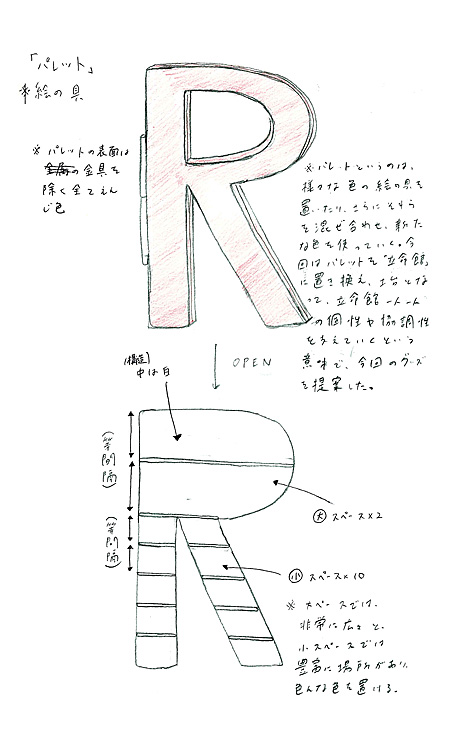 「パレット」
※絵の具
※パレットの表面は
金属の金具を
除く全てえん
じ色
※パレットというのは、
様々な色の絵の具を
置いたり、さらにそれら
を混ぜ合わせ、新た
な色を使っていく。今
回はパレットを「立命館」
に置き換え、土台とな
って、立命館一人一人
の個性や協調性
を支えていくという
意味で、今回のグッズ
を提案した。
OPEN
[構造]
中は白
(等間隔)
(等間隔)
大 スペース×2
小 スペース×10
※大スペースでは、
非常に広々と、
小スペースでは
豊富に場所があり、
色んな色を置ける。